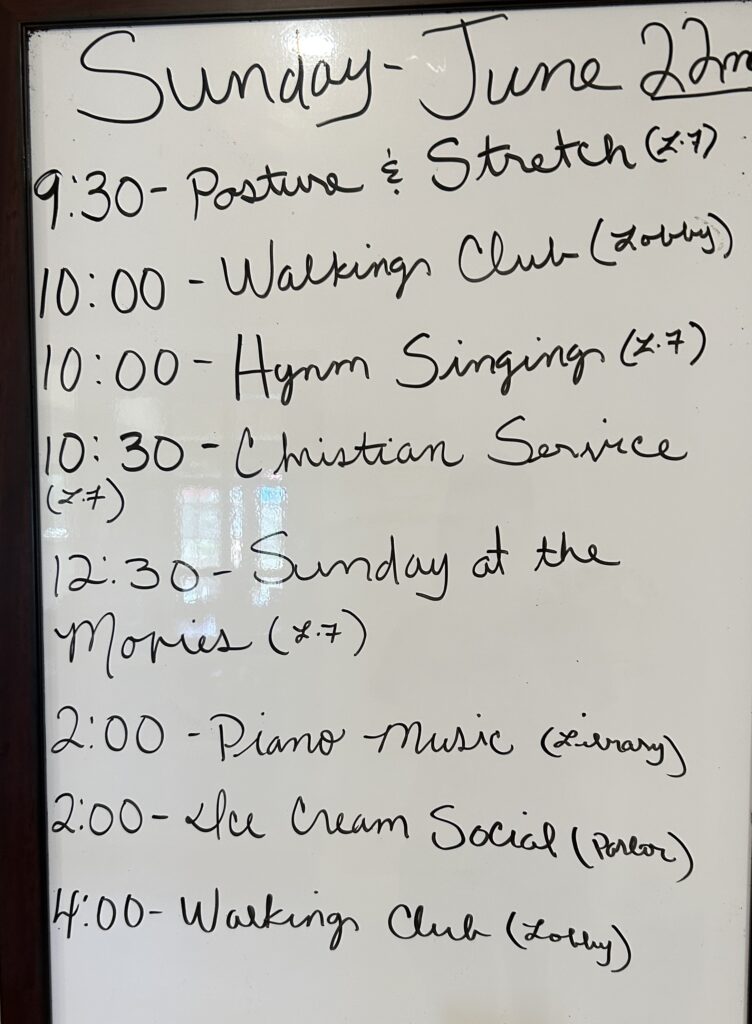 Sunday - June 22nd
9:30 - Posture & Stretch (L.7)
10:00 - Walking Club (Lobby)
10:00 - Hynm Singing (L.7)
10:30 - Christian Service
(L.7)
12:30 - Sunday at the
Movies (L.7)
2:00 - Piano Music (Library)
2:00 - Ice Cream Social (Parlor)
4:00 - Walking Club (Lobby)